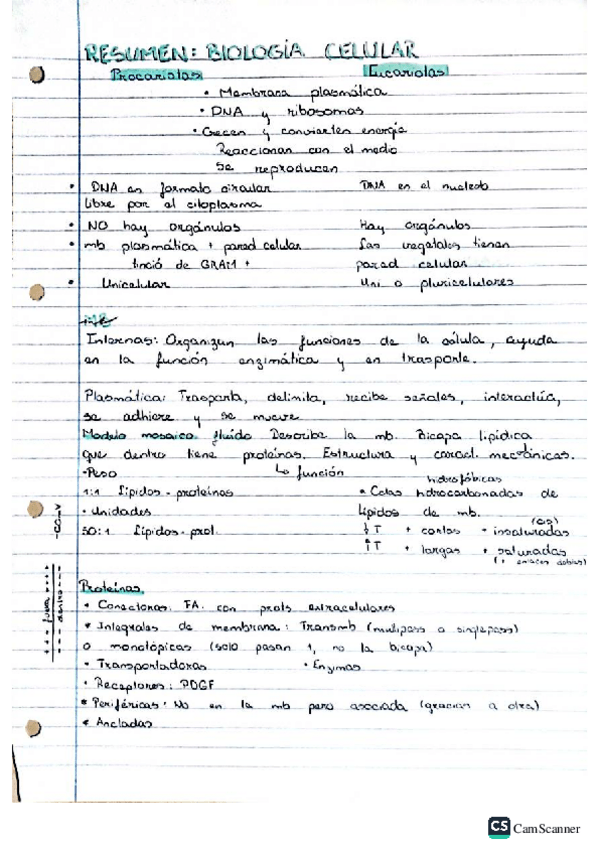 RESUMEN: BIOLOGÍA CELULAR
Procariotas
Eucariotas
• Membrana plasmática
• DNA y ribosomas
• Crecen y convierten energía
Reaccionan con el medio
Se reproducen
• DNA en formato circular
libre por el citoplasma
DNA en el nucleo
• NO hay orgánulos
Hay orgánulos
• mb plasmática + pared celular
tinció de GRAM +
Las vegetales tienen
pared celular
• Unicelular
Uni o pluricelulares
Internas: Organizan las funciones de la célula, ayuda
en la función enzimática y en trasporte.
Plasmática: Trasporta, delimita, recibe señales, interactúa,
se adhiere y se mueve
Modelo mosaico fluído Describe la mb. Bicapa lipídica
que dentro tiene proteínas. Estructura y caract. mecánicas.
↳ función
• Peso
1:1 Lípidos - proteínas
• Unidades
50:1 Lípidos - prot.
hidrofóbicas
• Colas hidrocarbonadas de
lípidos de mb.
↓T + cortas + insaturadas
↑T + largas + saturadas
(+ enlaces dobles)
+++ fuera +++
--- dentro ---
Proteínas
• Conectoras: FA. con prots extracelulares
• Integrales de membrana: Transmb (multipass o singlepass)
o monotópicas (solo pasan 1, no la bicapa)
• Transportadoras • Enzymas
• Receptores: PDGF
• Periféricas: No en la mb pero asociada (gracias a otra)
• Ancladas
CS CamScanner